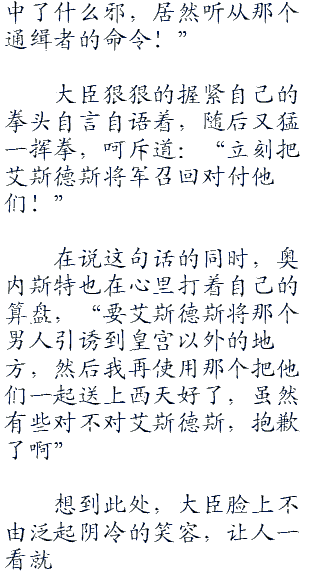 中了什么邪，居然听从那个
通缉者的命令！”
大臣狠狠的握紧自己的
拳头自言自语着，随后又猛
一挥拳，呵斥道：“立刻把
艾斯德斯将军召回对付他
们！”
在说这句话的同时，奥
内斯特也在心里打着自己的
算盘，“要艾斯德斯将那个
男人引诱到皇宫以外的地
方，然后我再使用那个把他
们一起送上西天好了，虽然
有些对不对艾斯德斯，抱歉
了啊”
想到此处，大臣脸上不
由泛起阴冷的笑容，让人一
看就